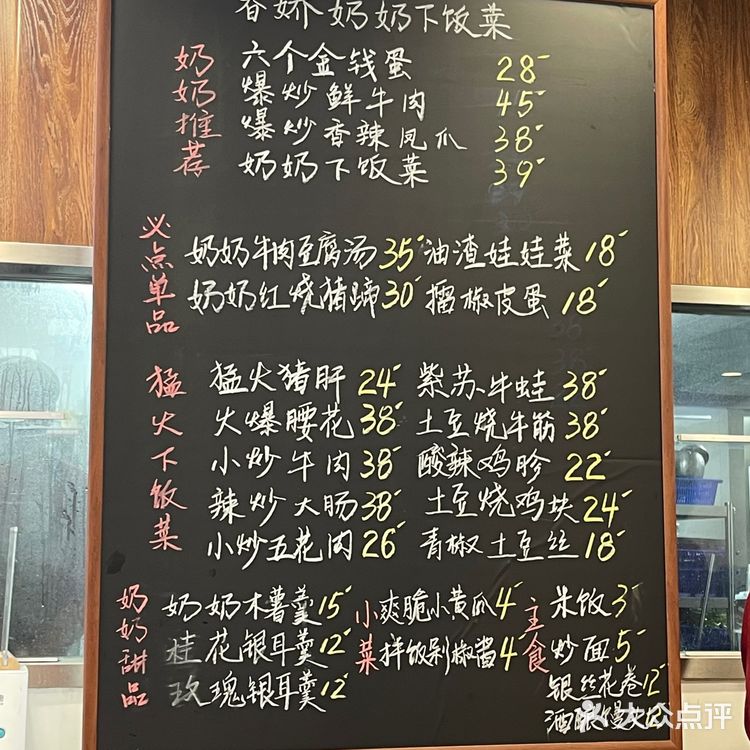 香娇奶奶下饭菜
奶奶推荐
六个金钱蛋 28
爆炒鲜牛肉 45
爆炒香辣凤爪 38
奶奶下饭菜 39
必点单品
奶奶牛肉豆腐汤 35 油渣娃娃菜 18
奶奶红烧猪蹄 30 擂椒皮蛋 18
猛火下饭菜
猛火猪肝 24 紫苏牛蛙 38
火爆腰花 38 土豆烧牛筋 38
小炒牛肉 38 酸辣鸡胗 22
辣炒大肠 38 土豆烧鸡块 24
小炒五花肉 26 青椒土豆丝 18
奶奶甜品
奶奶木薯羹 15
桂花银耳羹 12
玫瑰银耳羹 12
小菜
爽脆小黄瓜 4
拌饭剁椒酱 4
主食
米饭 3
炒面 5
银丝花卷 12
酒酿馒头 12
大众点评